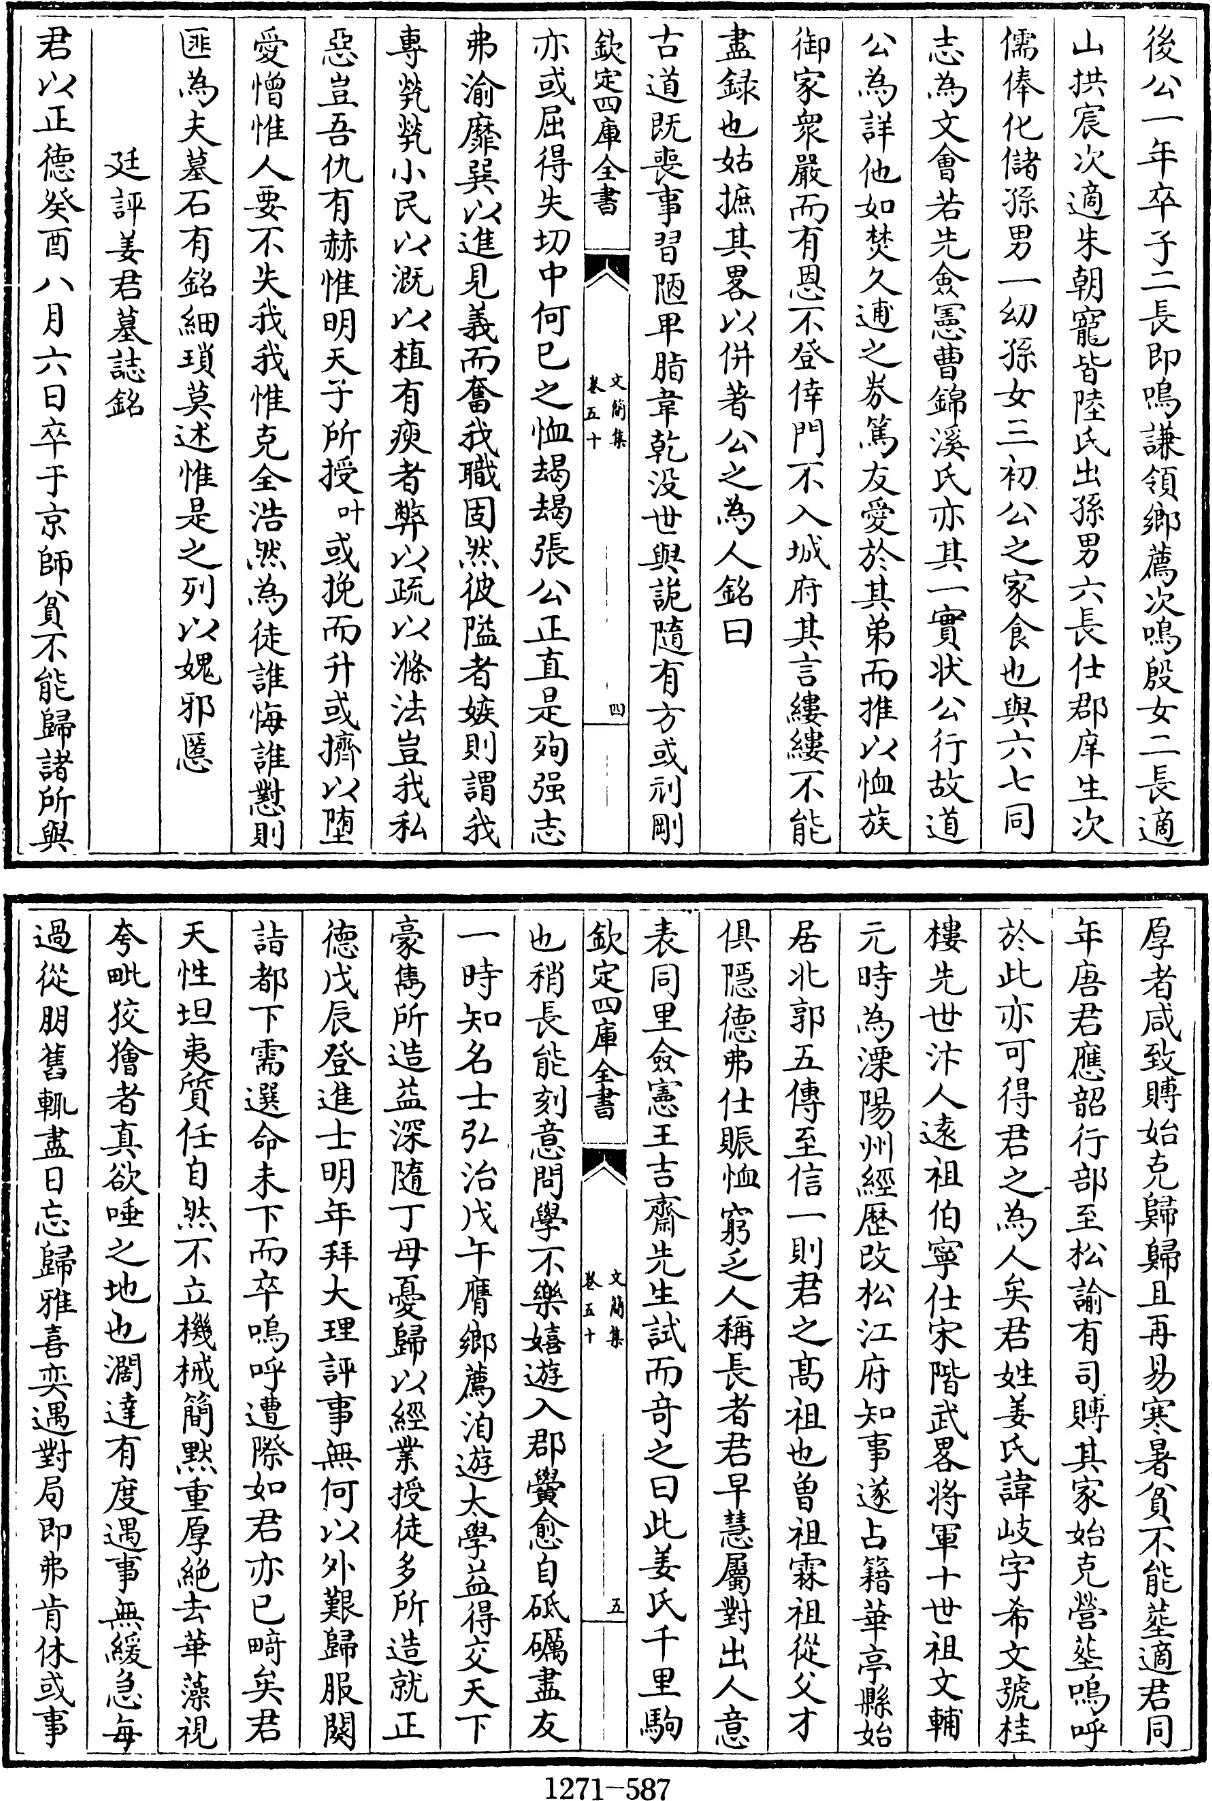 後公一年卒子二長即鳴謙領鄉薦次鳴殷女二長適
山拱宸次適朱朝寵皆陸氏出孫男六長仕郡庠生次
儒俸化儲孫男一幼孫女三初公之家食也與六七同
志為文會若先僉憲曹錦溪氏亦其一實狀公行故道
公為詳他如焚久逋之券篤友愛於其弟而推以恤族
御家衆嚴而有恩不登倖門不入城府其言縷縷不能
盡録也姑摭其畧以併著公之為人銘曰
古道既喪事習陋卑脂韋乾没世與詭隨有方或刓剛
欽定四庫全書
文簡集
卷五十
四
亦或屈得失切中何已之恤朅朅張公正直是殉强志
弗渝靡巽以進見義而奮我職固然彼隘者嫉則謂我
專煢煢小民以溉以植有瘐者弊以疏以滌法豈我私
惡豈吾仇有赫惟明天子所授叶或挽而升或擠以墮
愛憎惟人要不失我我惟克全浩然為徒誰悔誰懟則
匪為夫墓石有銘細瑣莫述惟是之列以媿邪慝
廷評姜君墓誌銘
君以正德癸酉八月六日卒于京師貧不能歸諸所與
厚者咸致賻始克歸歸且再易寒暑貧不能塟適君同
年唐君應韶行部至松諭有司賻其家始克營塟嗚呼
於此亦可得君之為人矣君姓姜氏諱岐字希文號桂
樓先世汴人遠祖伯寧仕宋階武畧將軍十世祖文輔
元時為溧陽州經歷改松江府知事遂占籍華亭縣始
居北郭五傳至信一則君之髙祖也曽祖霖祖從父才
俱隱德弗仕賑恤窮乏人稱長者君早慧屬對出人意
表同里僉憲王吉齋先生試而竒之曰此姜氏千里駒
欽定四庫全書
文簡集
卷五十
五
也稍長能刻意問學不樂嬉遊入郡黌愈自砥礪盡友
一時知名士弘治戊午膺鄉薦洎遊太學益得交天下
豪雋所造益深隨丁母憂歸以經業授徒多所造就正
德戊辰登進士明年拜大理評事無何以外艱歸服闋
詣都下需選命未下而卒嗚呼遭際如君亦已畸矣君
天性坦夷質任自然不立機械簡默重厚絶去華藻視
夸毗狡獪者真欲唾之地也濶達有度遇事無緩急每
過從朋舊輒盡日忘歸雅喜奕遇對局即弗肯休或事
1271-587